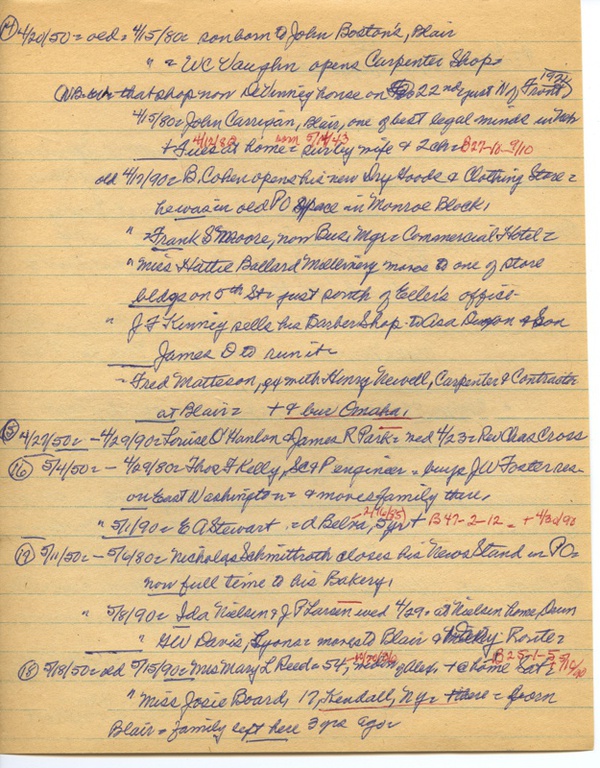 (14) 4/20/50 = old = 4/15/80 = son born to John Boston's, Blair
" = W C Vaughn opens Carpenter Shop =
(NB that shop now DeVinney house on So 22nd just N of Front) 1974
4/15/80 = John Carrigan, Blair, one of best legal minds in Neb
+ Tues at home = wife & 2 ch = B27-18-9/10
4/13/80 born 5/14/43
old 4/17/90 = B. Cohen opens his new Dry Goods & Clothing Store =
he was in old PO Space in Monroe Block,
" = Frank S Moore, now Bus. Mgr = Commercial Hotel =
" Miss Hattie Ballard Millinery moves to one of store
bldgs on 5th St = just south of Eller's office =
" J F Kinney sells his Barber Shop to Asa Dixon & Son
James O to run it =
= Fred Matteson, 94 with Henry Newell, Carpenter & Contractor
at Blair = + & bur Omaha,
(15) 4/27/50 = - 4/29/90 = Louise O'Hanlon & James R Park = wed 4/23 = Rev Chas Cross
(16) 5/4/50 = - 4/29/80 = Thos F Kelly, SC&P engineer = buys J W Foster res =
on East Washington = & moves family there,
" 5/1/90 = E A Stewart = d Belva, 5 yr + B47-2-12 = + 4/30/90
2/16/85)
(17) 5/11/50 = - 5/6/80 = Nicholas Schmittroth closes his News Stand in PO =
now full time to his Bakery,
" 5/8/90 = Ida Nielsen & J P Larsen wed 4/29 = at Nielsen home,
" G W Davis, Lyons = moves to Blair & Route =
(18) 5/18/50 = old 5/15/90 = Mrs Mary L Reed = 54, of Alex, + @ home Sat = B25-1-5 5/10/90
" Miss Josie Board, 17, Kendall, Ny = there = born
Blair = family left here 3 yrs ago =